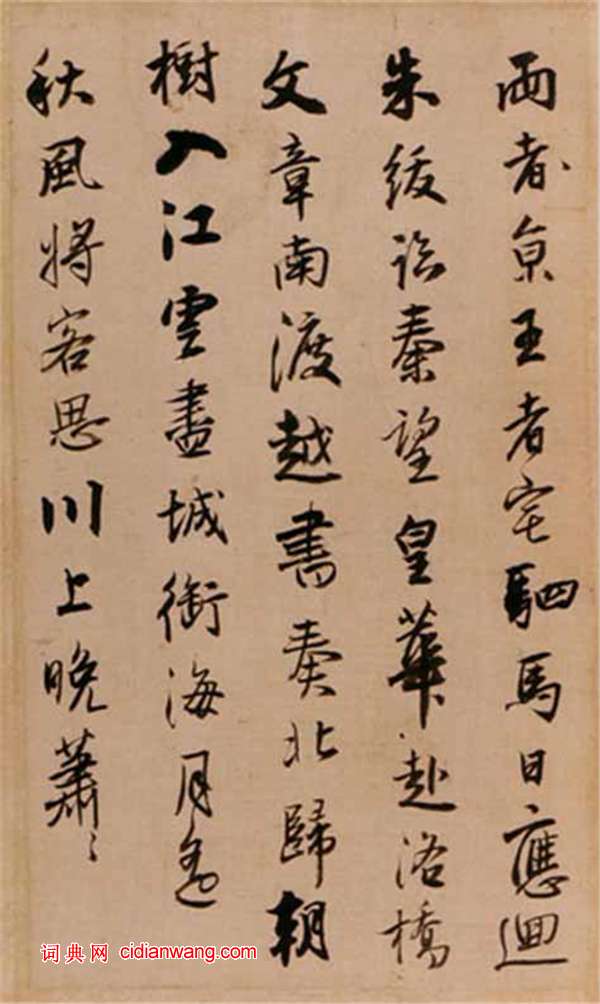 兩都京王者宅駟馬日應迴
朱紱臨秦望皇華赴洛橋
文章南渡越書奏北歸朝
樹入江雲盡城銜海月遙
秋風將客思川上晚蕭〻
词典网 cidianwang.com